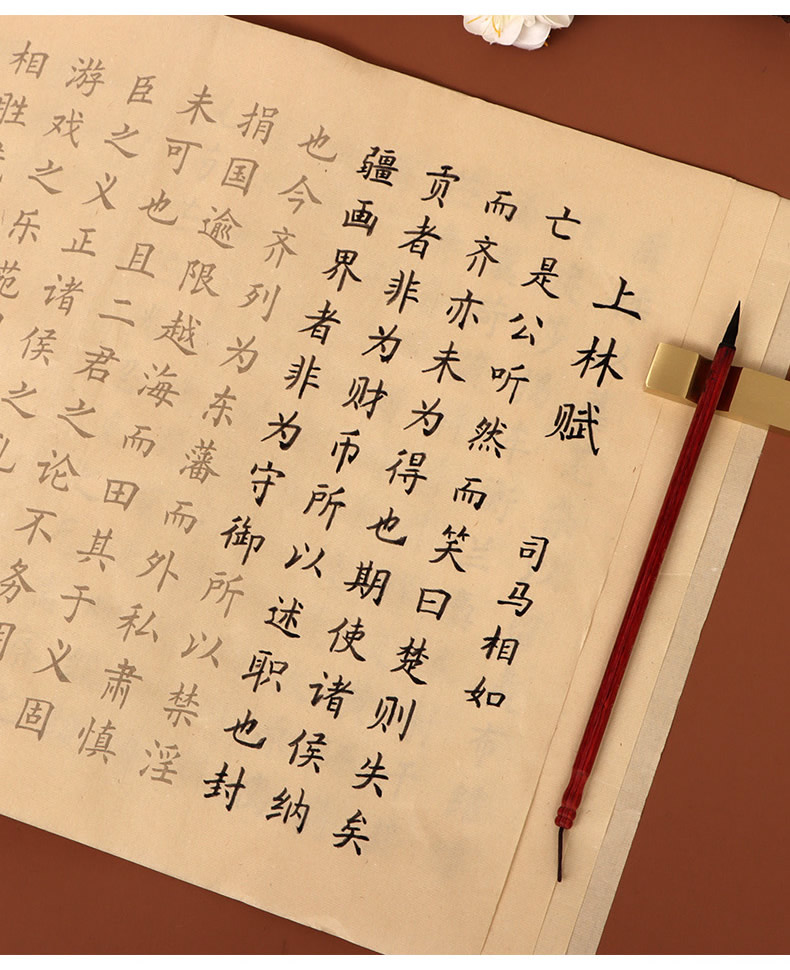 上林赋
司马相如
亡是公听然而笑曰楚则失矣
而齐亦未为得也期使诸侯纳
贡者非为财币所以述职也封
疆画界者非为守御所以禁淫
也今齐列为东藩而外私肃慎
捐国逾限越海而田其于义固
未可也且二君之论不务
臣之义正诸侯之
游戏之乐苑
相胜